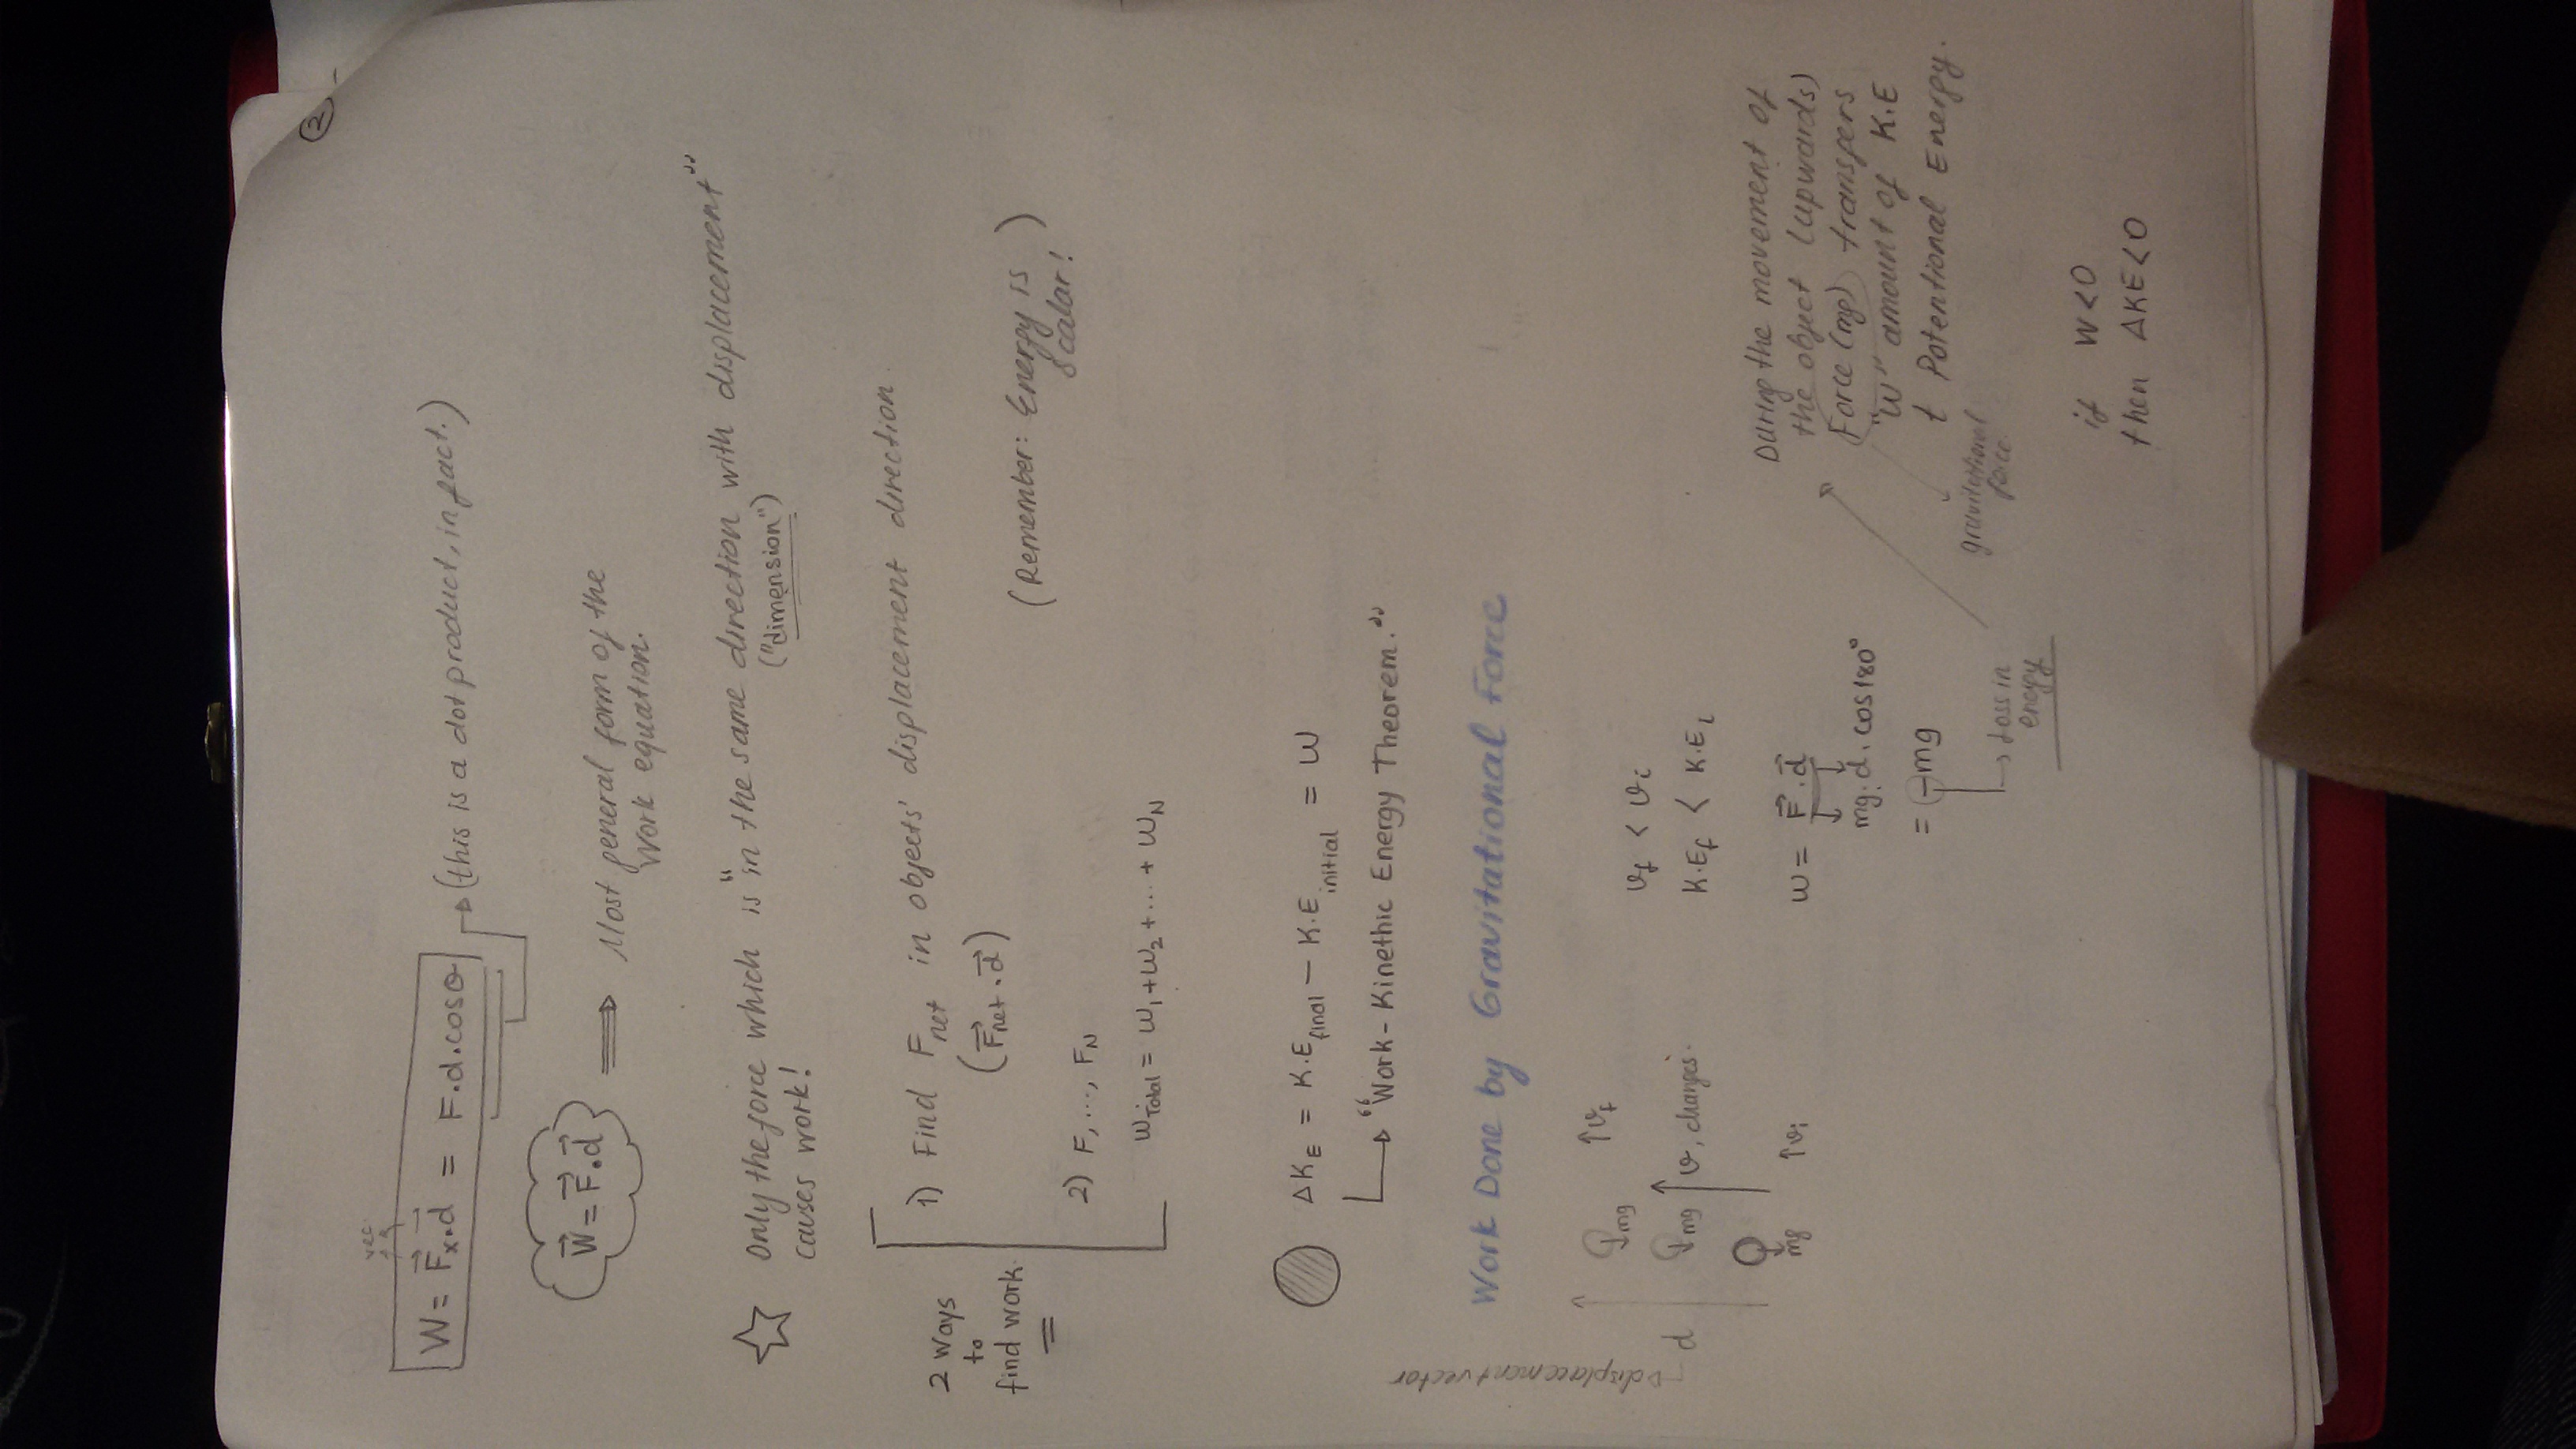 2
vec
W = F⃗x . d⃗ = F.d.cosθ
(this is a dot product, in fact.)
W⃗ = F⃗ . d⃗
Most general form of the
Work equation.
Only the force which is "in the same direction with displacement"
("dimension")
causes work!
2 ways
to
find work
1) Find Fnet in objects' displacement direction.
(F⃗net . d⃗)
(Remember: Energy is
Scalar!)
2) F, ..., FN
WTotal = W1 + W2 + ... + WN
ΔKE = K.Efinal – K.Einitial = W
"Work-Kinethic Energy Theorem."
Work Done by Gravitational Force
displacement vector
d
mg
vf
mg
v, changes.
mg
vi
vf < vi
K.Ef < K.Ei
W = F⃗ . d⃗
mg. d. cos180°
= -mg
Loss in
energy
During the movement of
the object (upwards)
Force (mg) transfers
"W" amount of K.E
t Potentional Energy.
gravitational
force
if W<0
then ΔKE<0